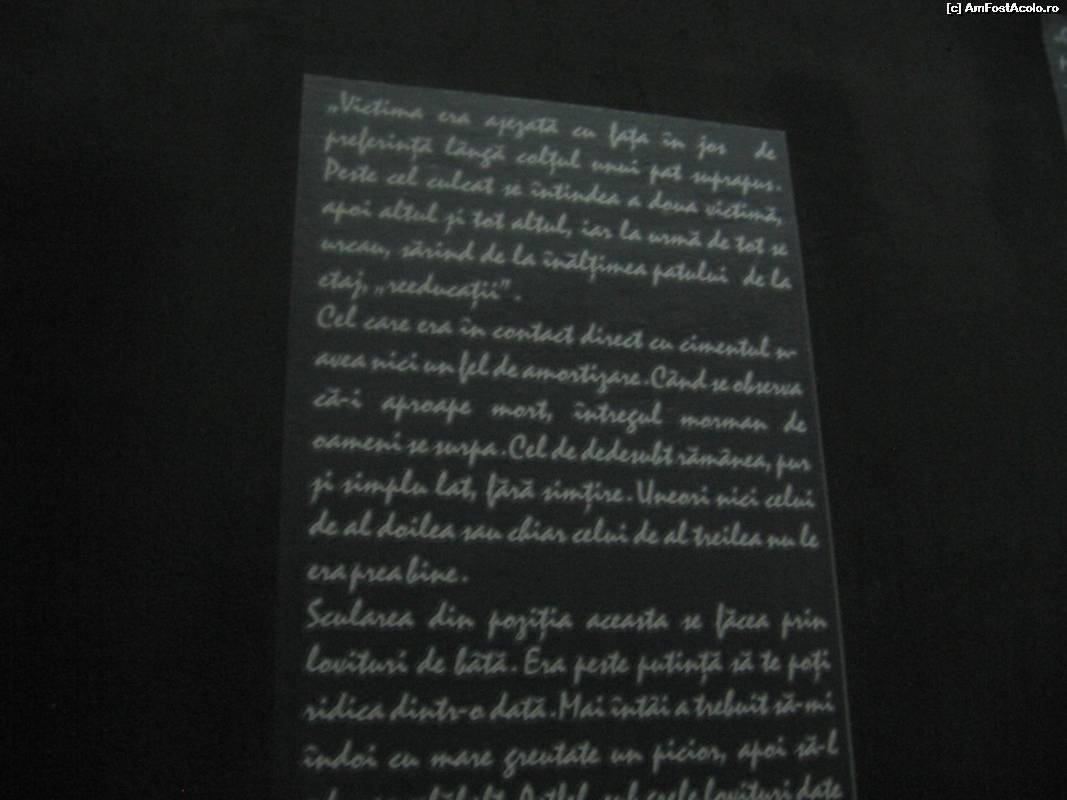 [c] AmFostAcolo.ro
„Victima era așezată cu fața în jos de
preferință lângă colțul unui pat suprapus.
Peste cel culcat se întindea a doua victimă,
apoi altul și tot altul, iar la urmă de tot se
urcau, sărind de la înălțimea patului de la
etaj, „reeducații”.
Cel care era în contact direct cu cimentul n-
avea nici un fel de amortizare. Când se observa
că-i aproape mort, întregul morman de
oameni se surpa. Cel de dedesubt rămânea, pur
și simplu lat, fără simțire. Uneori nici celui
de al doilea sau chiar celui de al treilea nu le
era prea bine.
Scularea din poziția aceasta se făcea prin
lovituri de bâtă. Era peste putință să te poți
ridica dintr-o dată. Mai întâi a trebuit să-mi
îndoi cu mare greutate un picior, apoi să-l
lovituri date